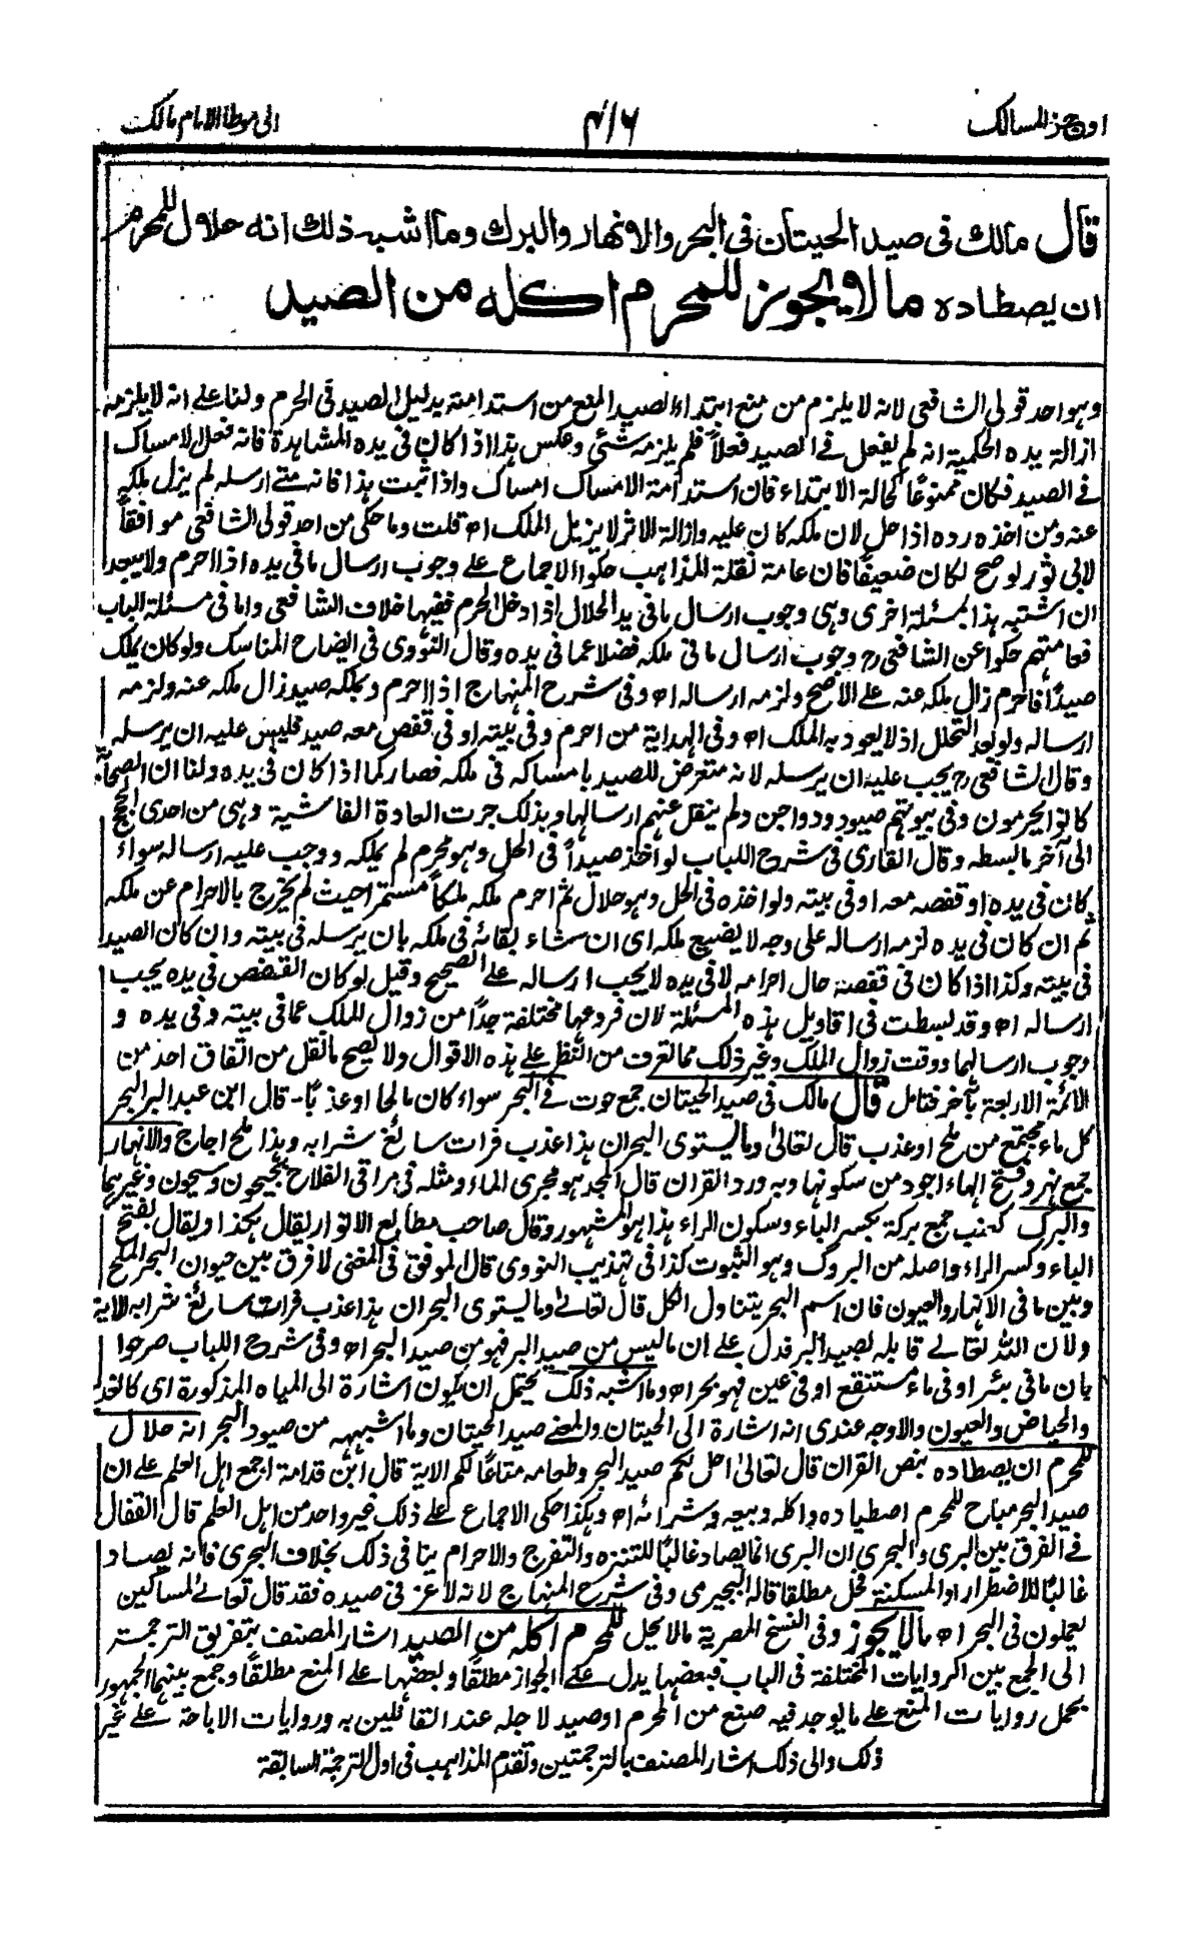 اوجز المسالك
۴۱۶
الى موطا الامام مالك
قال مالك فى صيد الحيتان فى البحر والانهار والبرك وما اشبه ذلك انه حلال للمحرم
ان يصطاده مالا يجوز للمحرم اكله من الصيد
وهو احد قولى الشافعى لانه لا يلزم من منع ابتداء الصيد المنع من استدامته بدليل الصيد فى الحرم ولنا على انه لا يلزمه
ازالة يده الحكمية انه لم يفعل فى الصيد فعلاً فلم يلزمه شئى وعكس هذا اذا كان فى يده المشاهدة فانه فعل الامساك
فى الصيد فكان ممنوعًا كحالة الابتداء فان استدامة الامساك امساك واذا ثبت هذا فانه متے ارسله لم يزل ملكه
عنه ومن اخذه رده اذا حل لان ملكه كان عليه وازالة الاثر لا يزيل الملك اھ قلت وما حكى من احد قولى الشافعى موافقاً
لابى ثور لو صح لكان ضعيفًا فان عامة نقلة المذاهب حكوا الاجماع علے وجوب ارسال ما فى يده اذا احرم ولا يبعد
ان اشتبه هذا بمسئلة اخرى وہى وجوب ارسال ما فى يد الحلال اذا دخل الحرم ففيها خلاف الشافعى واما فى مسئلة الباب
فعامتهم حكوا عن الشافعى رح وجوب ارسال ما فى ملكه فضلا عما فى يده وقال النووى فى ايضاح المناسك ولو كان يملك
صيدًا فاحرم زال ملكه عنه علے الاصح ولزمه ارساله اھ وفى شرح المنهاج اذا احرم وبملكه صيد زال ملكه عنه ولزمه
ارساله ولو بعد التحلل اذ لا يعود به الملك اھ وفى الهداية من احرم وفى بيته او فى قفص معه صيد فليس عليه ان يرسله
وقال الشافعى رح يجب عليه ان يرسله لانه متعرض للصيد بامساكه فى ملكه فصار كما اذا كان فى يده ولنا ان الصحابة
كانوا يحرمون وفى بيوتهم صيود ودواجن ولم ينقل عنهم ارسالها وبذلك جرت العادة الفاشية وہى من احدى الحجج
الى آخر ما بسطه وقال القارى فى شرح اللباب لو اخذ صيداً فى الحل وهو محرم لم يملكه ووجب عليه ارساله سواء
كان فى يده او قفصه معه او فى بيته ولو اخذه فى الحل وهو حلال ثم احرم ملكه ملكاً مستمرا حيث لم يخرج بالاحرام عن ملكه
ثم ان كان فى يده لزمه ارساله على وجه لا يضيع ملكه اى ان شاء بقائه فى ملكه بان يرسله فى بيته وان كان الصيد
فى بيته وكذا اذا كان فى قفصه حال احرامه لا فى يده لا يجب ارساله علے الصحيح وقيل لو كان القفص فى يده يجب
ارساله اھ وقد بسطت فى اقاويل هذه المسئلة لان فروعها مختلفة جدًا من زوال الملك عما فى بيته وفى يده و
وجوب ارسالهما ووقت زوال الملك وغير ذلك مما تعرف من النظر علے هذه الاقوال ولا يصح ما نقل من اتفاق احد من
الائمة الاربعة بآخر فتامل قال مالك فى صيد الحيتان جمع حوت فے البحر سواء كان مالحا او عذبًا۔ قال ابن عبد البر البحر
كل ماء مجتمع من ملح او عذب قال تعالى وما يستوى البحران هذا عذب فرات سائغ شرابه وهذا ملح اجاج والانهار
جمع نهر وفتح الهاء اجود من سكونها وبه ورد القران قال المجد هو مجرى الماء ومثله فى مراقى الفلاح بجيحون وسيحون وغيرهما
والبرك كعنب جمع بركة بكسر الباء وسكون الراء هذا هو المشهور وقال صاحب مطالع الانوار يقال هكذا ويقال بفتح
الباء وكسر الراء واصله من البروك وهو الثبوت كذا فى تهذيب النووى قال الموفق فى المغنى لا فرق بين حيوان البحر الملح
وبين ما فى الانهار والعيون فان اسم البحر يتناول الكل قال تعالےٰ وما يستوى البحران هذا عذب فرات سائغ شرابه الاية
ولان الله تعالےٰ قابله بصيد البر فدل علے ان ما ليس من صيد البر فهو من صيد البحر اھ وفى شرح اللباب صرحوا
بان ما فى بئر او فى ماء مستنقع او فى عين فهو بحر اھ وما اشبه ذلك يحتمل ان يكون اشارة الى المياه المذكورة اى كالغدير
والحياض والعيون والاوجه عندى انه اشارة الى الحيتان والمعنے صيد الحيتان وما اشبهه من صيود البحر انه حلال
للمحرم ان يصطاده بنص القران قال تعالىٰ احل لكم صيد البحر وطعامه متاعًا لكم الاية قال ابن قدامة اجمع اهل العلم علے ان
صيد البحر مباح للمحرم اصطياده واكله وبيعه وشرائه اھ وهكذا حكى الاجماع علے ذلك غير واحد من اهل العلم قال القفال
فے الفرق بين البرى والبحرى ان البرى انما يصاد غالبًا للتنزه والتفرج والاحرام ينافى ذلك بخلاف البحرى فانه يصاد
غالبًا للاضطرار او المسكنة فحل مطلقا قاله البجيرمى وفى شرح المنهاج لانه لا عز فى صيده فقد قال تعالےٰ لمساكين
يعملون فى البحر اھ مالا يجوز وفى النسخ المصرية مالا يحل للمحرم اكله من الصيد اشار المصنف بتفريق الترجمتين
الى الجمع بين الروايات المختلفة فى الباب فبعضها يدل علے الجواز مطلقًا وبعضها علے المنع مطلقًا وجمع بينهما الجمهور
بحمل روايات المنع علے ما يوجد فيه صنع من المحرم او صيد لاجله عند القائلين به وروايات الاباحة علے غير
ذلك والى ذلك اشار المصنف بالترجمتين وتقدم المذاهب فى اول الترجمة السابقة